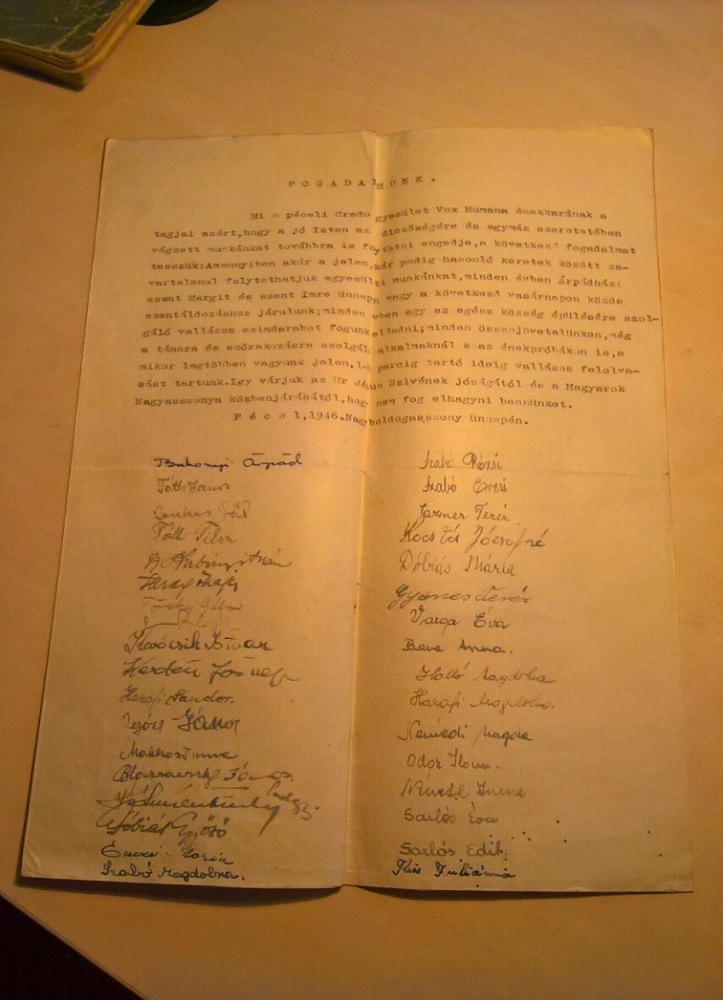 FOGADALMUNK.
Mi a péceli Credo egyesület Vox Humana énekkarának a
tagjai azért,hogy a jó Isten az dicsőségére és egymás szeretetében
végzett munkánkat továbbra is folytatni engedje,a következő fogadalmat
tesszük:Amennyiben akár a jelen,akár pedig hasonló keretek között za-
vartalanul folytathatjuk egyesületi munkánkat,minden évben árpádházi
szent Margit és szent Imre ünnepén vagy a következő vasárnapon közös
szentáldozáshoz járulunk;minden évben egy az egész község épülésére szol-
gáló vallásos szindarabot fogunk előadni;minden összejövetelünken,még
a táncra és szórakozásra szolgáló alkalmaknál s az énekpróbákon is,a
mikor legtöbben vagyunk jelen, percig tartó ideig vallásos felolva-
sást tartunk.Igy várjuk az Ur Jézus Szivének jóságától és a Magyarok
Nagyasszonya közbenjárásától,hogy nem fog elhagyni bennünket.
Pécel,1946.Nagyboldogasszony ünnepén.
Buhonyi Árpád
Tóth János
Pál
Tóth
István
Kovácsik István
Harafi Sándor.
János
Makkos Imre
János
Tóbiás Győző
Szabó Magdolna.
Szabó Rózsi
Szabó Erzsi
Jarmer Teréz
Kocsis Józsefné
Dóbiás Mária
Gyenes Teréz
Varga Éva
Beve Anna.
Holló Magdolna
Harafi Magdolna.
Némedi Magda
Odor Ilona.
Sarlós Éva
Sarlós Edit.
Kis Juliánna